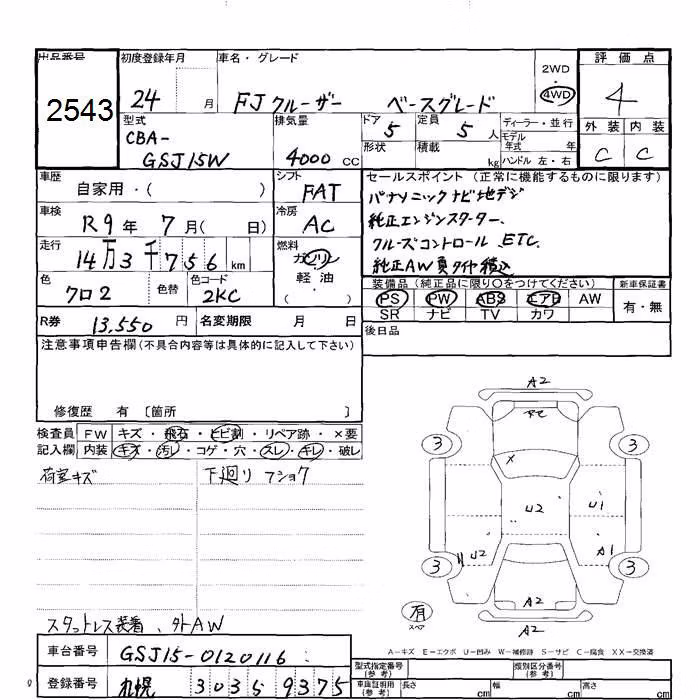 出品番号 初度登録年月 車名・グレード 評価点
2543 24 月 FJクルーザー ベースグレード 2WD・4WD 4
型式 CBA- GSJ15W
排気量 4000 cc
ドア 5 定員 5 人
形状 積載 kg
ディーラー・並行
モデル年式 年
ハンドル 左・右
外装 内装
C C
車歴 自家用・( )
シフト FAT
セールスポイント (正常に機能するものに限ります)
パナソニックナビ地デジ
純正エンジンスターター、
クルーズコントロール、ETC、
純正AW 夏タイヤ積込
車検 R9年 7月( 日)
冷房 AC
走行 14万3千756 km
燃料 ガソリン・軽油・( )
色 クロ2 色替 色コード 2KC
装備品 (純正品に限り○をつけてください) 新車保証書
PS PW ABS エアB AW 有・無
SR ナビ TV カワ
R券 13,550 円 名変期限 月 日
後日品
注意事項申告欄(不具合内容等は具体的に記入して下さい)
修復歴 有 〔箇所 〕
検査員 FW キズ・飛石・ヒビ割・リペア跡・×要
記入欄 内装 キズ・汚レ・コゲ・穴・スレ・キレ・破レ
荷室キズ 下廻りフショク
A2
3 3
X
U2 U1
U2 A1
3 3
A2 A2
有 スペア
A2
スタットレス装着、外AW
A-キズ E-エクボ U-凹み W-補修跡 S-サビ C-腐食 XX-交換済
車台番号 GSJ15-0120116
型式指定番号(参考) 類別区分番号(参考)
登録番号 札幌 303 so 9375
車庫証明用(参考) 長さ cm 幅 cm 高さ cm